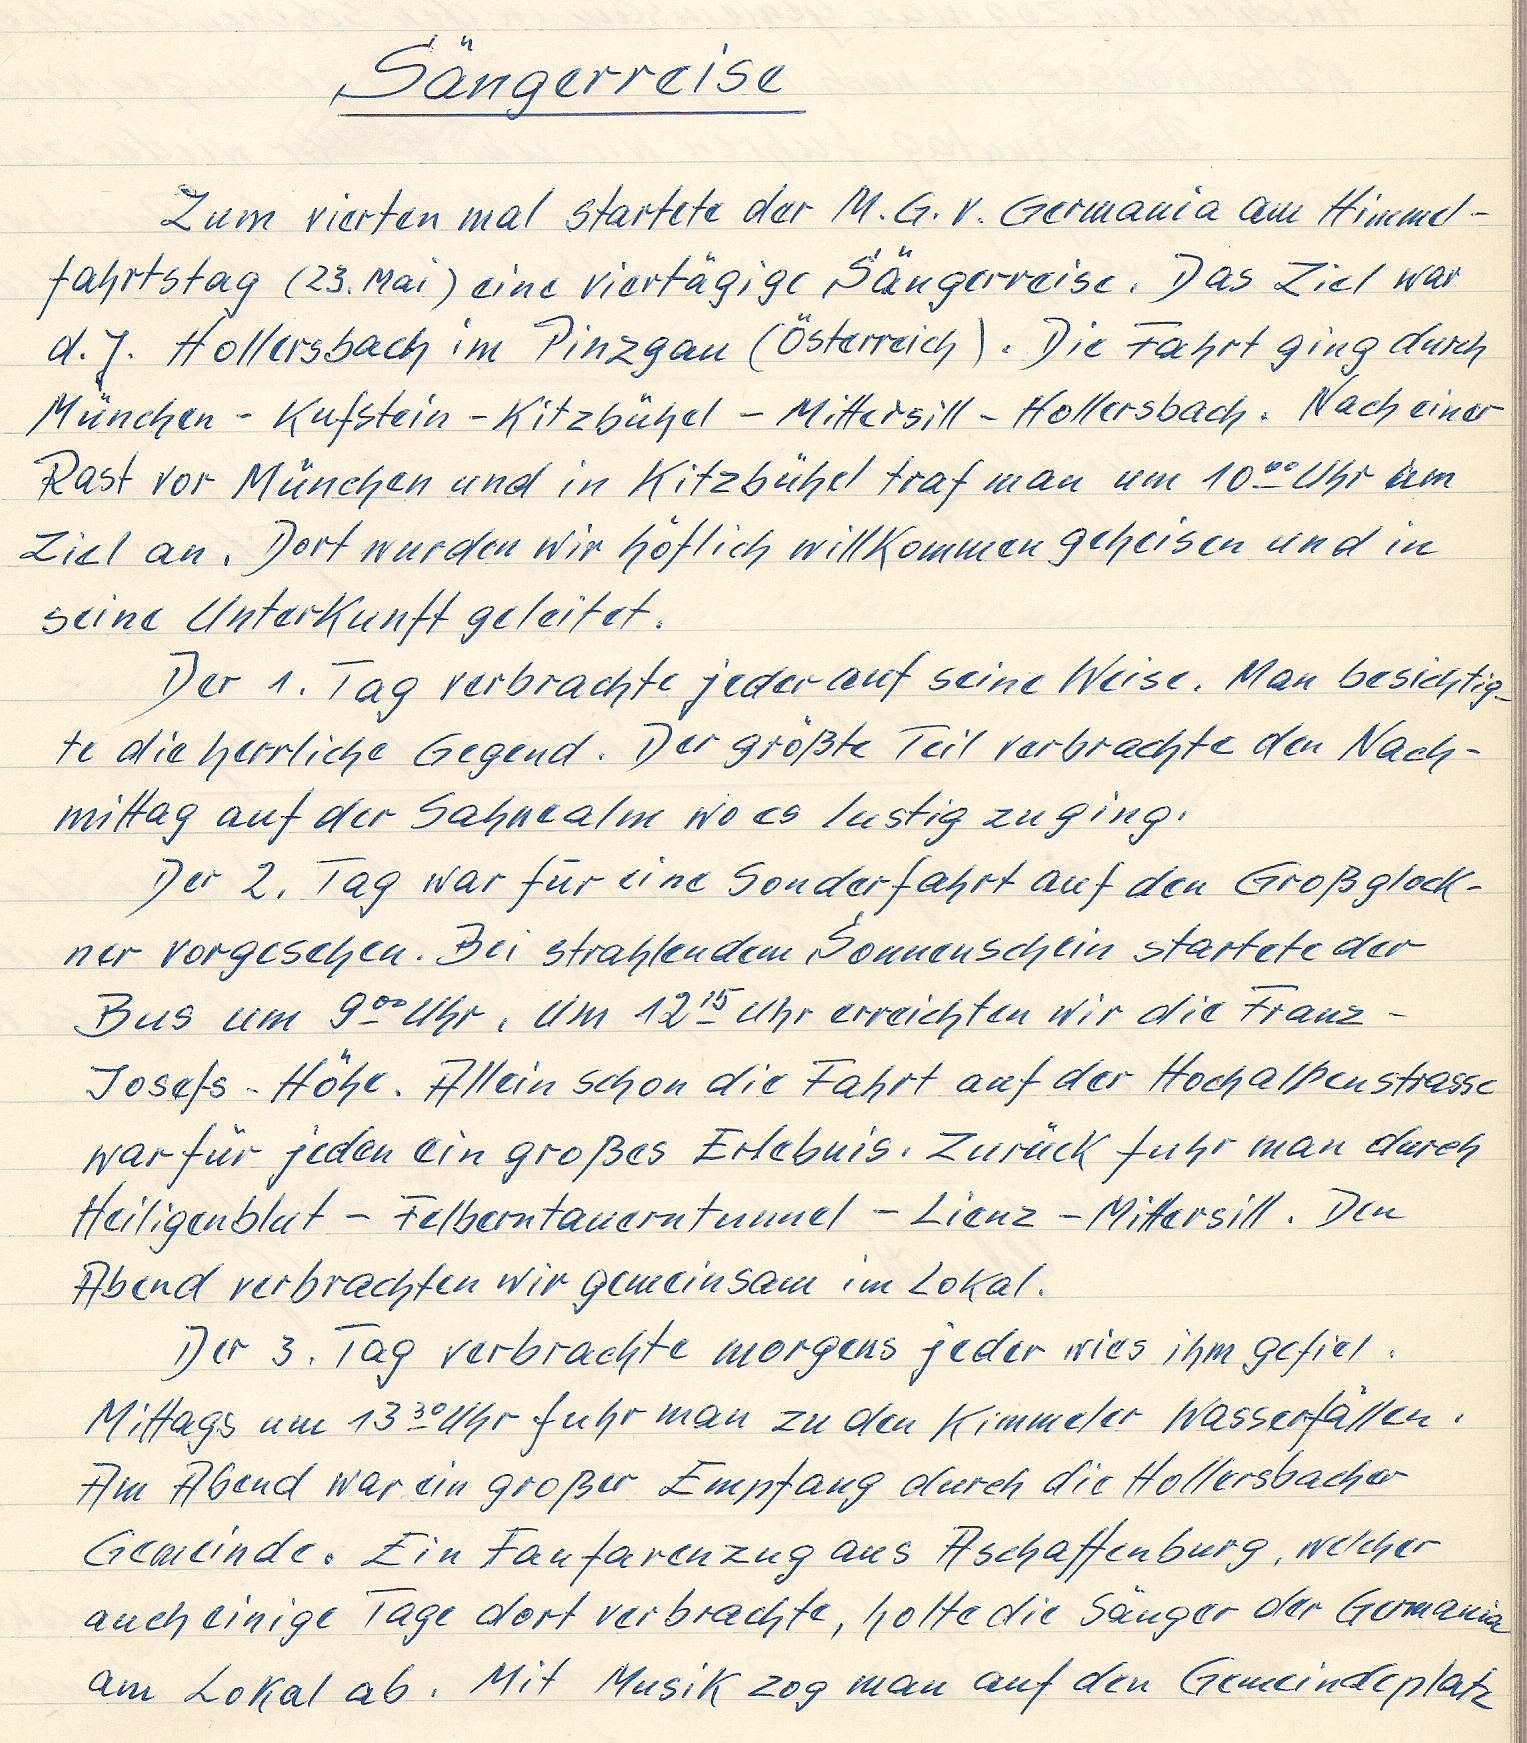 Sängerreise
Zum vierten mal startete der M.G.V. Germania am Himmel-
fahrtstag (23. Mai) eine viertägige Sängerreise. Das Ziel war
d.J. Hollersbach im Pinzgau (Österreich). Die Fahrt ging durch
München - Kufstein - Kitzbühel - Mittersill - Hollersbach. Nach einer
Rast vor München und in Kitzbühel traf man um 10⁰⁰ Uhr am
Ziel an. Dort wurden wir höflich willkommen geheisen und in
seine Unterkunft geleitet.
Der 1. Tag verbrachte jeder auf seine Weise. Man besichtig-
te die herrliche Gegend. Der größte Teil verbrachte den Nach-
mittag auf der Sahnealm wo es lustig zuging.
Der 2. Tag war für eine Sonderfahrt auf den Großglock-
ner vorgesehen. Bei strahlendem Sonnenschein startete der
Bus um 9⁰⁰ Uhr. Um 12¹⁵ Uhr erreichten wir die Franz-
Josefs-Höhe. Allein schon die Fahrt auf der Hochalpenstrasse
war für jeden ein großes Erlebnis. Zurück fuhr man durch
Heiligenblut - Felberntauerntunnel - Lienz - Mittersill. Den
Abend verbrachten wir gemeinsam im Lokal.
Der 3. Tag verbrachte morgens jeder wies ihm gefiel.
Mittags um 13³⁰ Uhr fuhr man zu den Kimmeler Wasserfällen.
Am Abend war ein großer Empfang durch die Hollersbacher
Gemeinde. Ein Fanfarenzug aus Aschaffenburg, welcher
auch einige Tage dort verbrachte, holte die Sänger der Germania
am Lokal ab. Mit Musik zog man auf den Gemeindeplatz